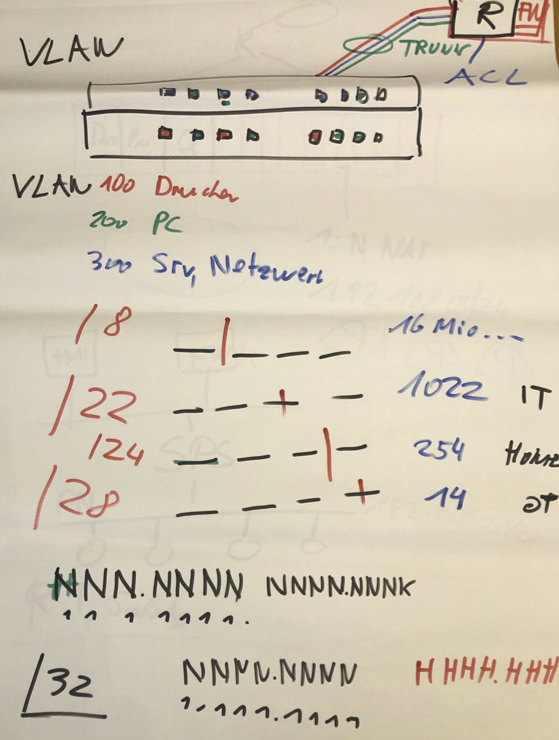 R FW
VLAN
TRUNK
ACL
VLAN 100 Drucker
200 PC
300 Srv, Netzwerk
/8 16 Mio...
/22 1022 IT
/24 254 Home
/28 14 OT
NNN.NNNN NNNN.NNNK
1 1 1 1 1 1 1.
/32 NNNN.NNNN HHHH.HHH
1.1111.1111